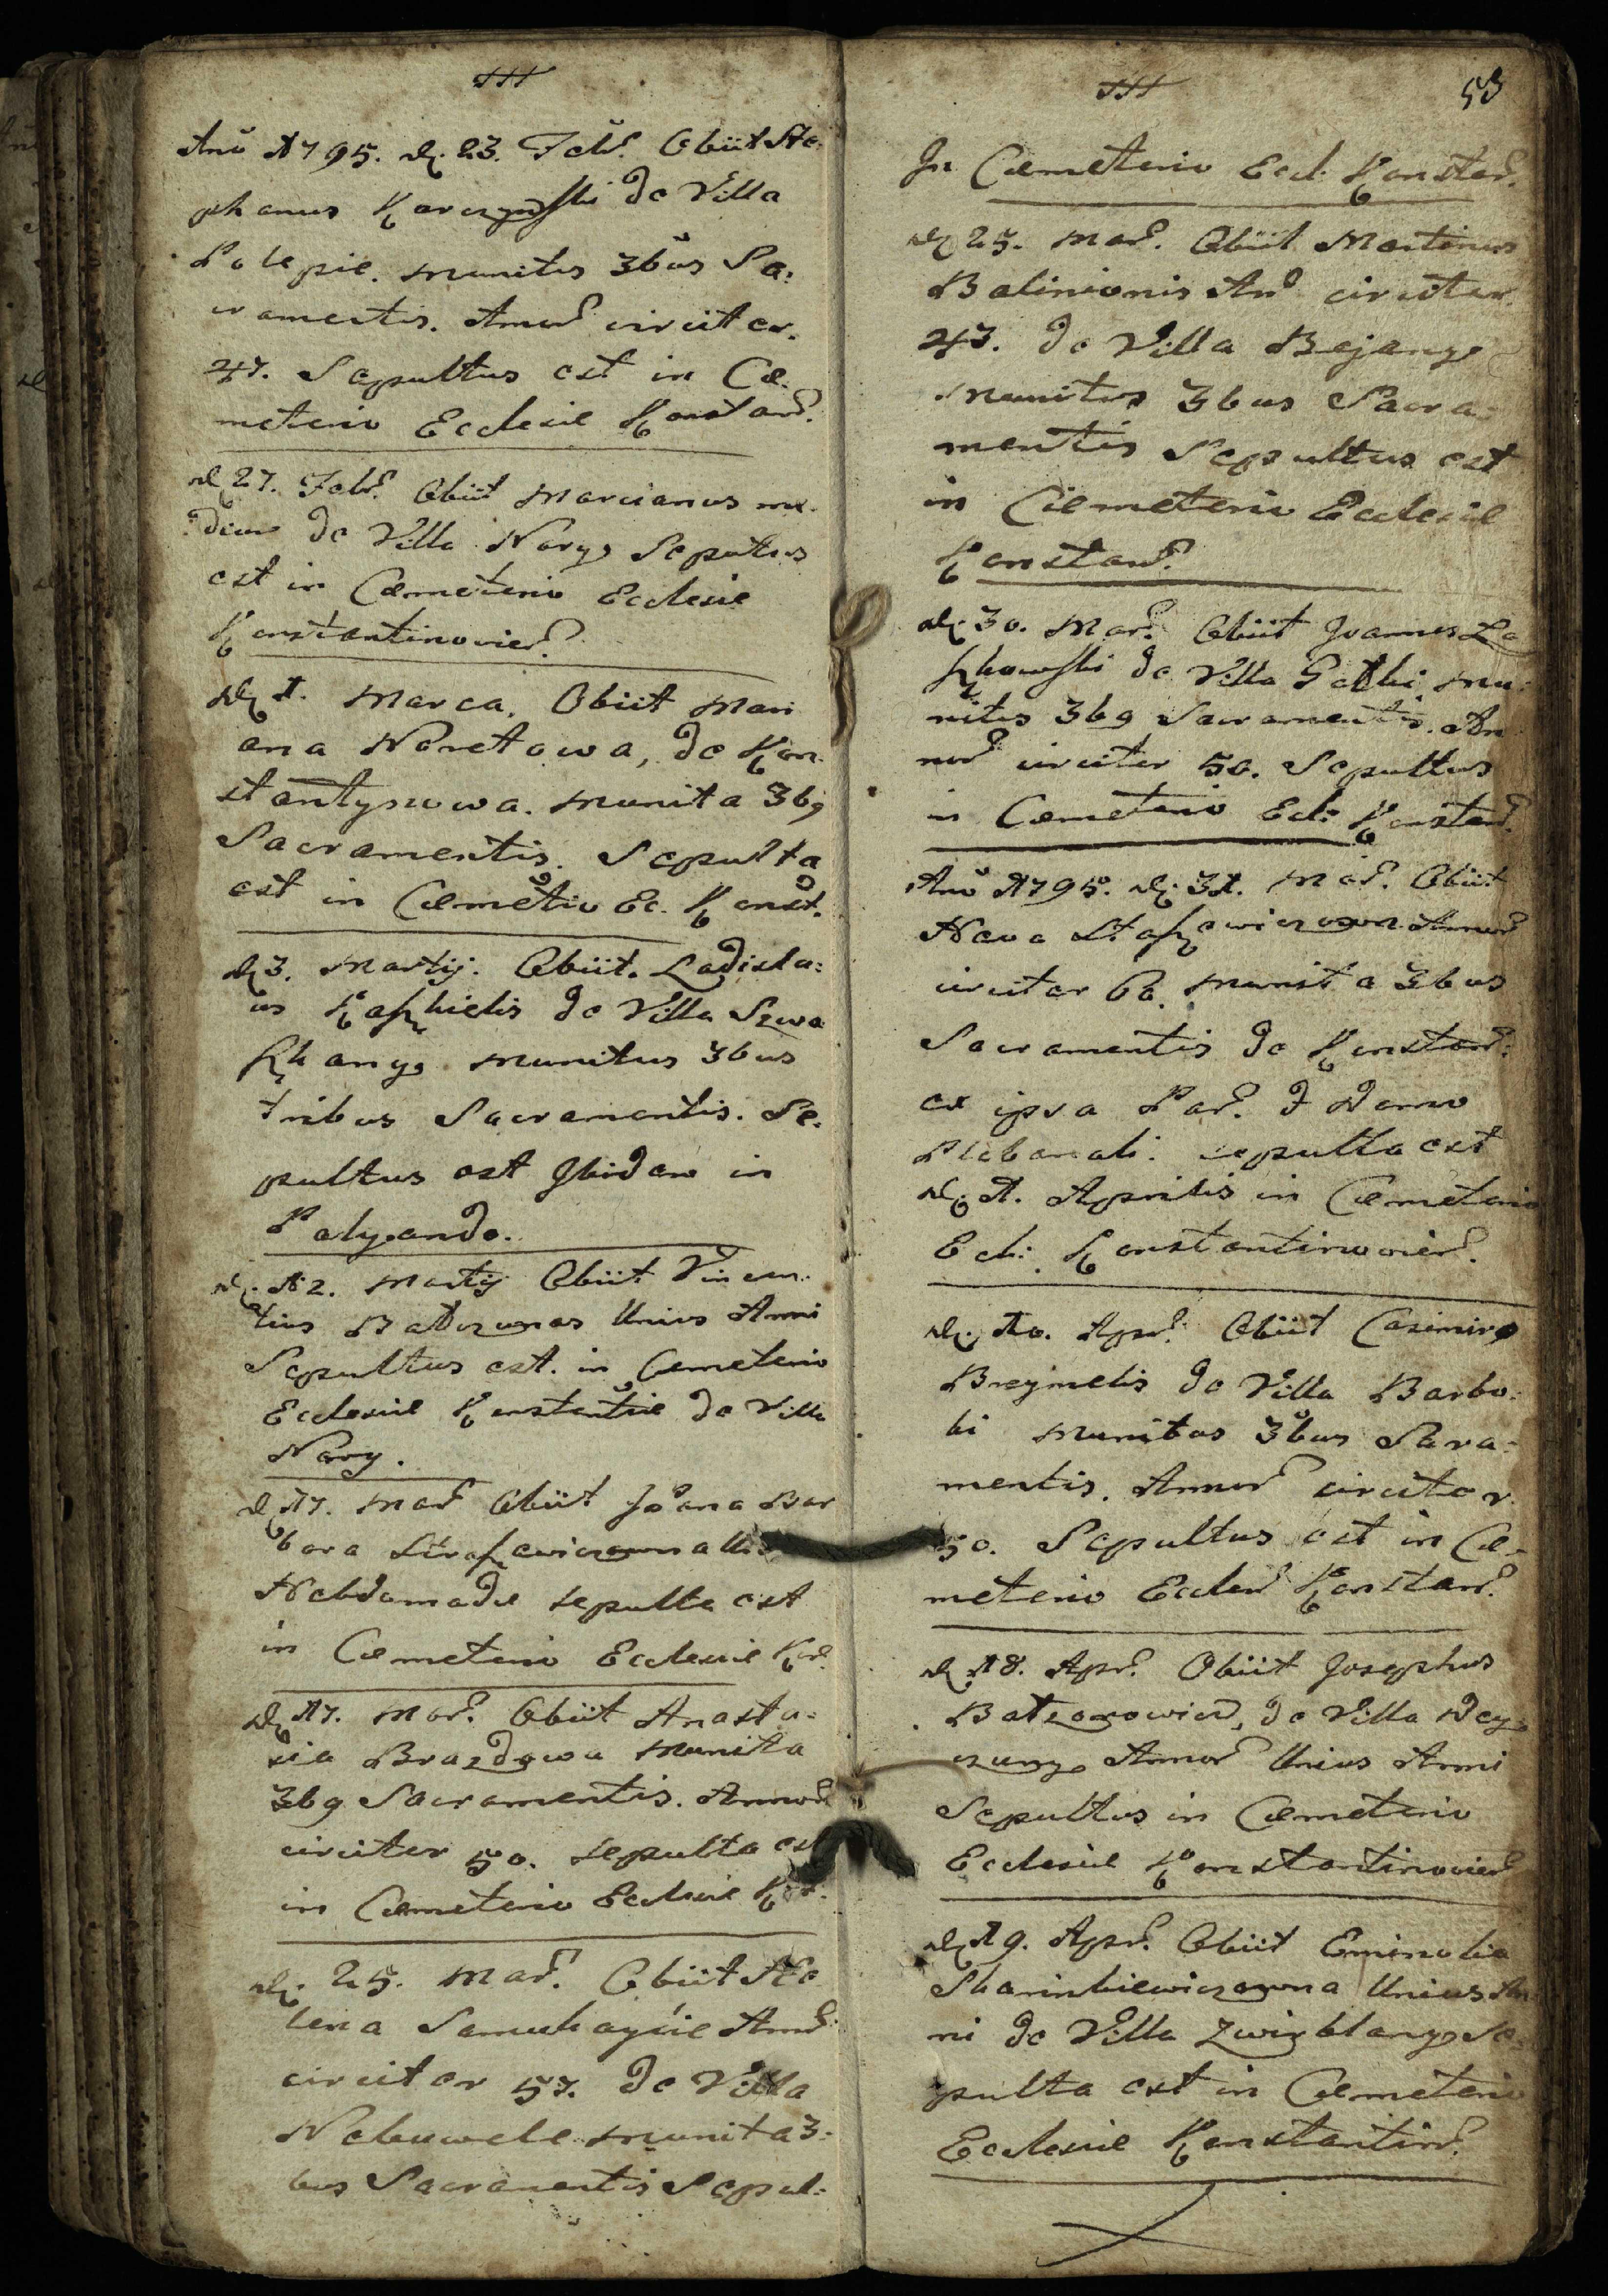 Anō 1795. d. 23. Febr. Obiit Ste:
phanus Korczyński de Villa
Polepie. munitus 3bus Sa:
cramentis. Annor circiter.
47. Sepultus est in Cæ:
meterio Ecclesiæ Konstan.
d. 27. Febr. Obiit Marcianus
de Villa Nory, Sepultus
est in Cæmeterio Ecclesiæ
Konstantinovien.
d. 1. Marca. Obiit Mari
ana Noretowa, de Kon:
stantynowa. munita 3bꝰ
Sacramentis. Sepulta
est in Cæmetio Ec. Konst.
d. 3. Martij. Obiit. Ladisla:
us de Villa Szwa
kszany, munitus 3bus
tribus Sacramentis. Se:
pultus est Ibidem in
Polyando.
d. 12. Martij Obiit Vincen:
tius Unius Anni
Sepultus est. in Cæmeterio
Ecclesiæ Konstantiæ de Villa
Nory.
d. 17. Mar. Obiit Joana Bar
bara
Hebdomadæ sepulta est
in Cæmeterio Ecclesiæ Kon.
d. 17. Mar. Obiit Anasta:
sia Brazdowa munita
3bꝰ Sacramentis. Annor
circiter 50. sepulta est
in Cæmeterio Ecclesiæ
d. 25. Mar. Obiit He
lena Annor
circiter 57. de Villa
munita 3:
bus Sacramentis Sepul:
III
53
In Cæmeterio Eccl: Konstan.
d. 25. Mar. Obiit Martinus
Balinionis An circiter.
43. de Villa Bejany
munitus 3bus Sacra:
mentis Sepultus est
in Cæmeterio Ecclesiæ
Konstan.
d. 30. Mar. Obiit Joannes La
de Villa mu:
nitus 3bꝰ Sacramentis. An
nor circiter 50. Sepultus
in Cæmeterio Ecl: Konstan.
Anō 1795. d. 31. Mar. Obiit
Annor
circiter 60. munita 3bus
Sacramentis de Konstan:
ex ipsa Par. Domo
Plebanali. sepulta est
d. 1. Aprilis in Cæmeterio
Ecl: Konstantinovien.
d. 10. Apr. Obiit Casimirꝰ
Breymelis de Villa Barbo:
ki munitus 3bus Sacra:
mentis. Annor circiter
50. Sepultus est in Cæ:
meterio Eccles Konstan.
d. 18. Apr. Obiit Josephus
de Villa Dey:
czuny, Annor Unius Anni
Sepultus in Cæmeterio
Ecclesiæ Konstantinovien
d. 19. Apr. Obiit
Skarinkiewiczowna Unius An
ni de Villa Zwirblany, Se:
pulta est in Cæmeterio
Ecclesiæ Konstantin.